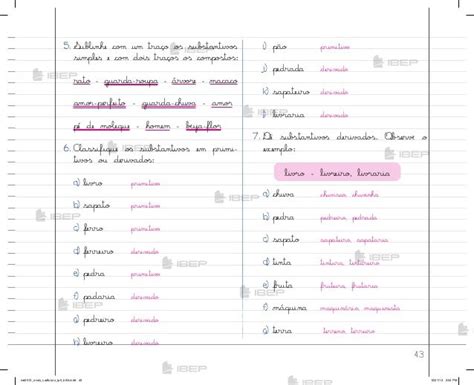 5. Sublinhe com um traço os substantivos
simples e com dois traços os compostos:
rato - guarda-roupa - árvore - macaco
amor-perfeito - guarda-chuva - amor
pé de moleque - homem - beija-flor
6. Classifique os substantivos em primi-
tivos ou derivados:
a) livro primitivo
b) sapato primitivo
c) ferro primitivo
d) ferreiro derivado
e) pedra primitivo
f) padaria derivado
g) pedreiro derivado
h) livreiro derivado
i) pão primitivo
j) pedrada derivado
k) sapateiro derivado
l) livraria derivado
7. Dê substantivos derivados. Observe o
exemplo:
livro - livreiro, livraria
a) chuva chuvisco, chuvinha
b) pedra pedreira, pedrada
c) sapato sapateiro, sapataria
d) tinta tintura, tintureiro
e) fruta fruteira, frutaria
f) máquina maquinário, maquinista
g) terra terreno, terreiro
43
IBEP